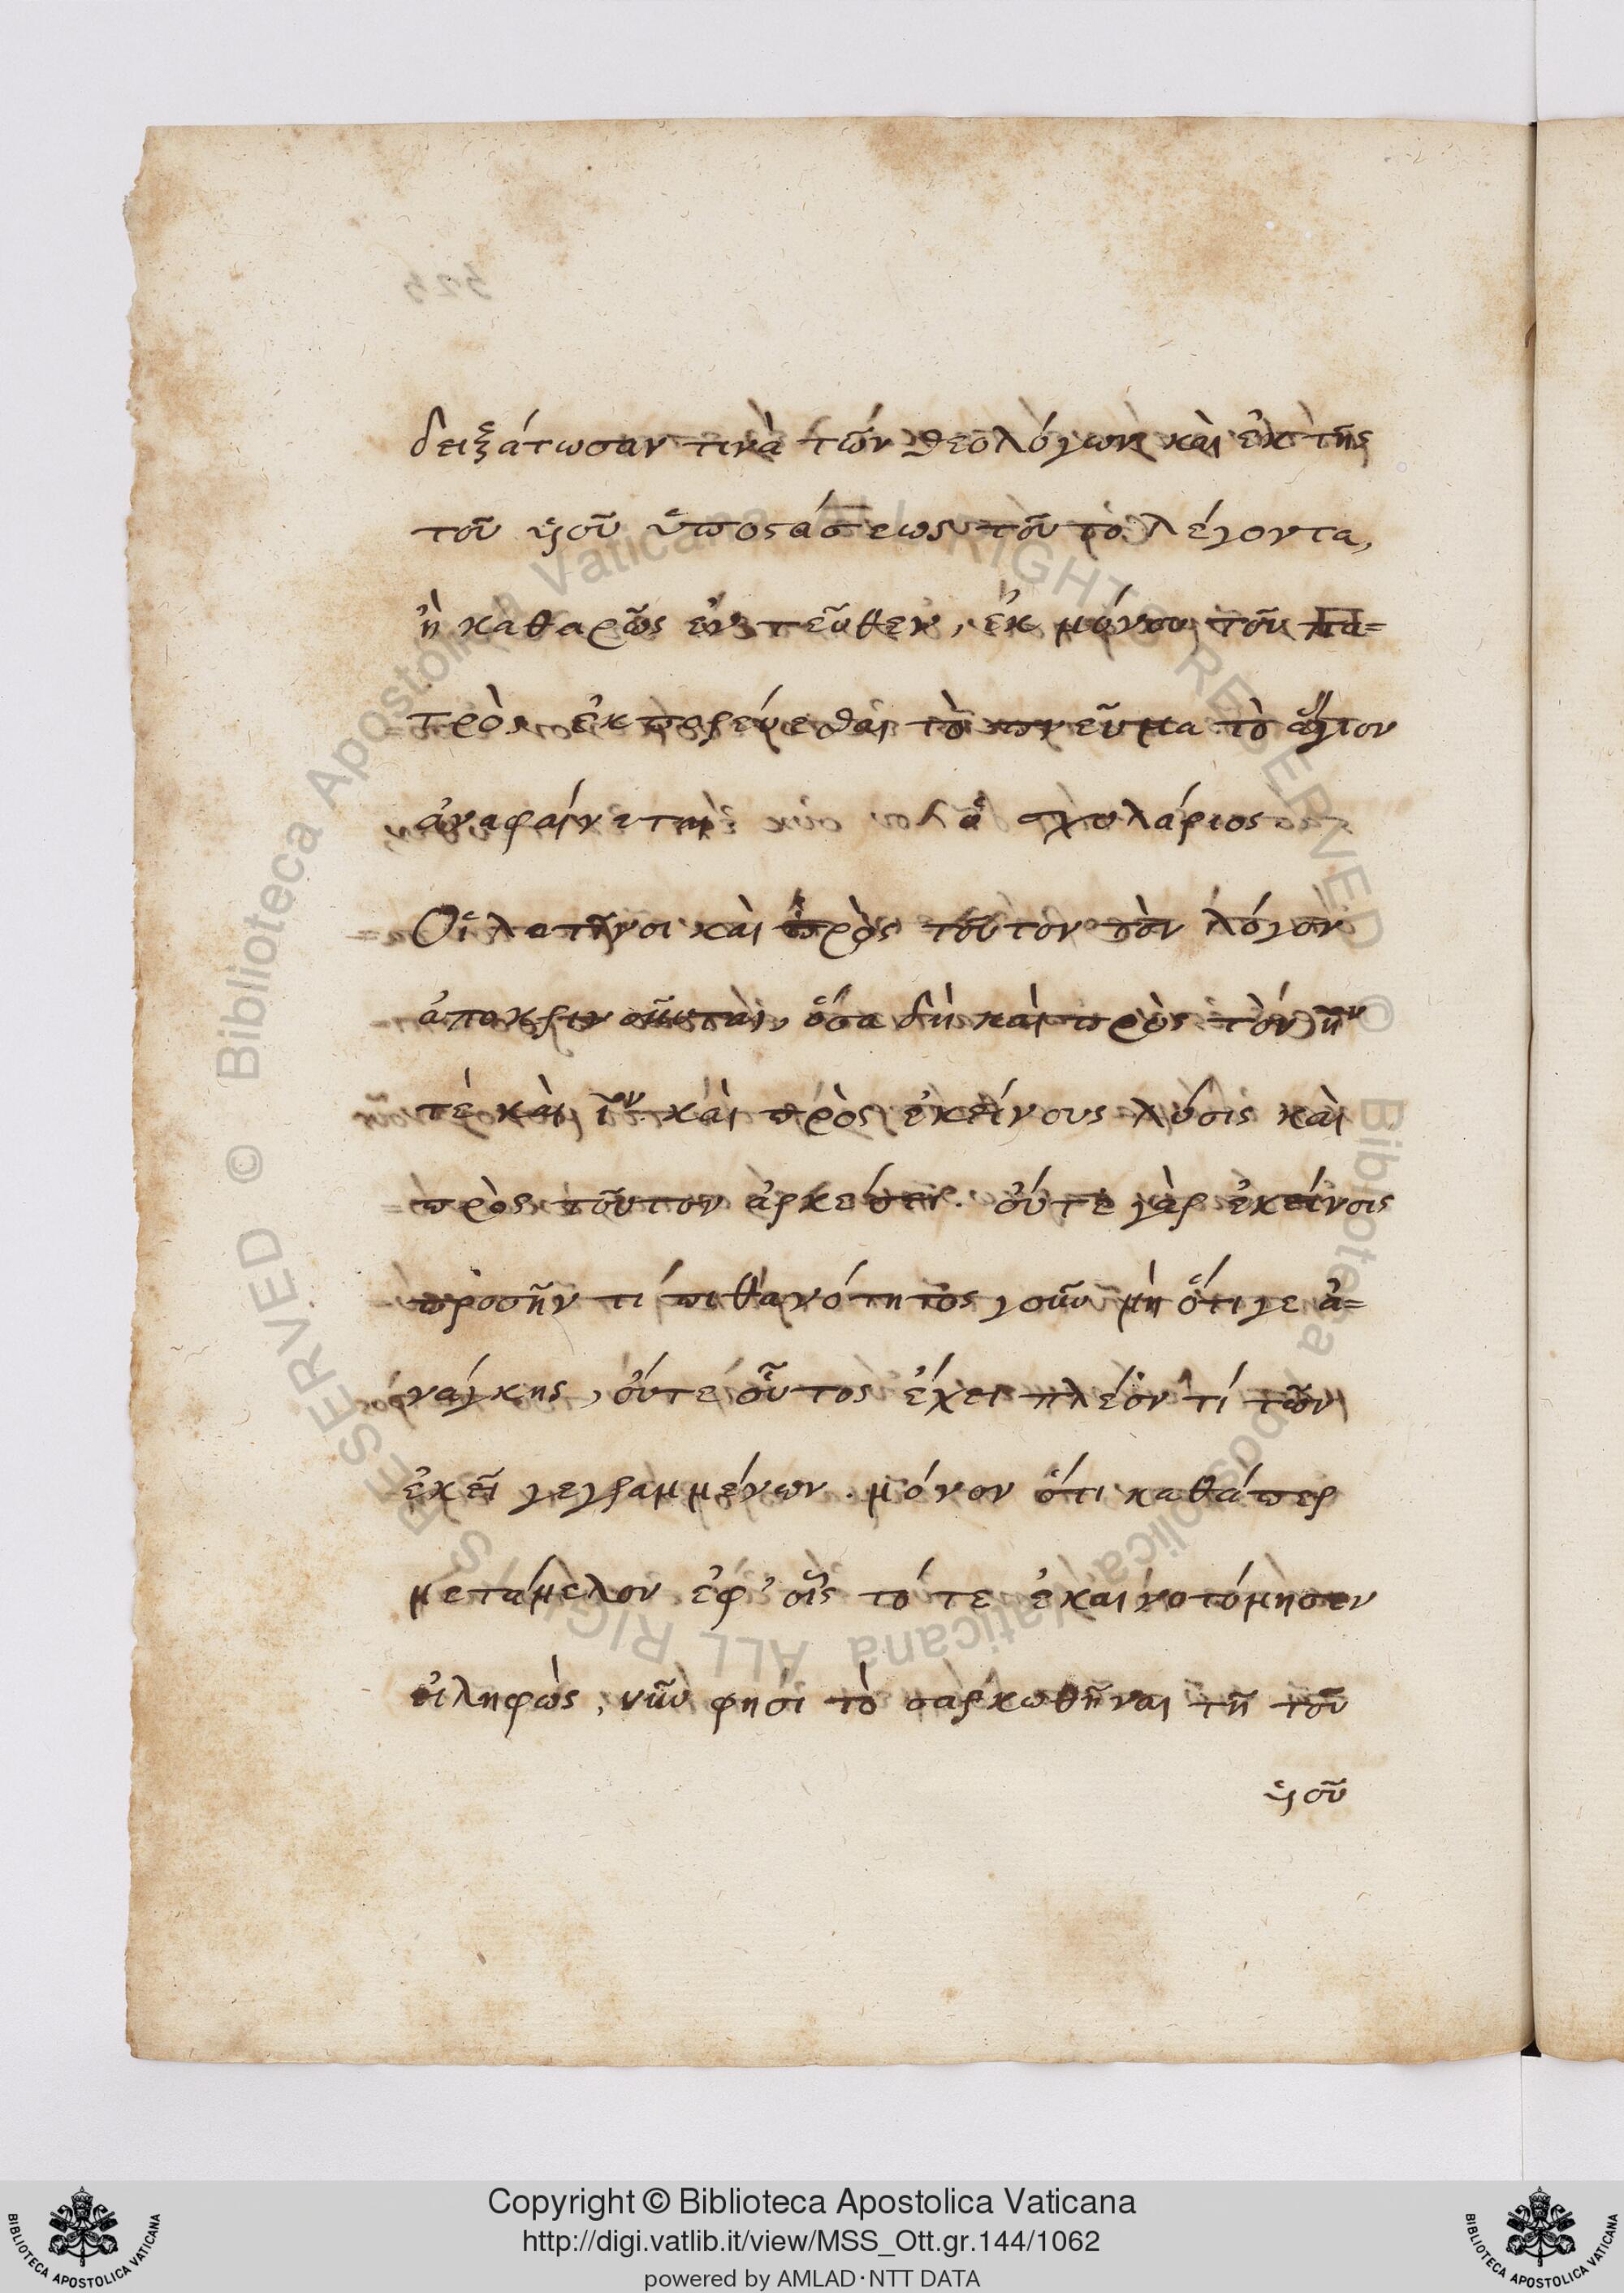 δειξάτωσαν τινὰ τῶν θεολόγων καὶ ἐκ τῆς
τοῦ ὑιοῦ ὑποστάσεως τοῦτο λέγοντα,
ἢ καθαρῶς ἐντεῦθεν, ἐκ μόνου τοῦ πα=
τρὸς ἐκπορεύεσθαι τὸ πνεῦμα τὸ ἅγιον
ἀναφαίνεται ὁ σχολάριος
Οἱ λατῖνοι καὶ πρὸς τοῦτον τὸν λόγον
ἀποκρινοῦνται, ὅσα δὴ καὶ πρὸς τὸν η̅ον
τὲ καὶ ι̅ον. καὶ πρὸς ἐκείνους λύσις καὶ
πρὸς τοῦτον ἀρκέσει. οὔτε γὰρ ἐκείνοις
προσῆν τί πιθανότητος γοῦν μὴ ὅτι γε ἀ=
νάγκης, οὔτε οὗτος ἔχει πλέον τί τῶν
ἐκεῖ γεγραμμένων. μόνον ὅτι καθάπερ
μετάμελον ἐφ' οἷς τότε ἐκαινοτόμησεν
εἰληφὼς, νῦν φησὶ τὸ σαρκωθῆναι τῇ τοῦ
ὑιοῦ
Copyright © Biblioteca Apostolica Vaticana
http://digi.vatlib.it/view/MSS_Ott.gr.144/1062
powered by AMLAD·NTT DATA